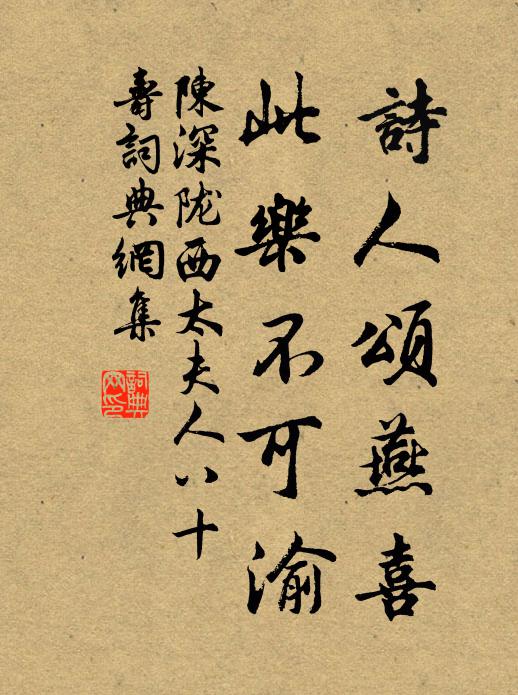 詩人頌燕喜
此樂不可渝
陳深陇西太夫人八十
壽詞典網集
詞典
网印